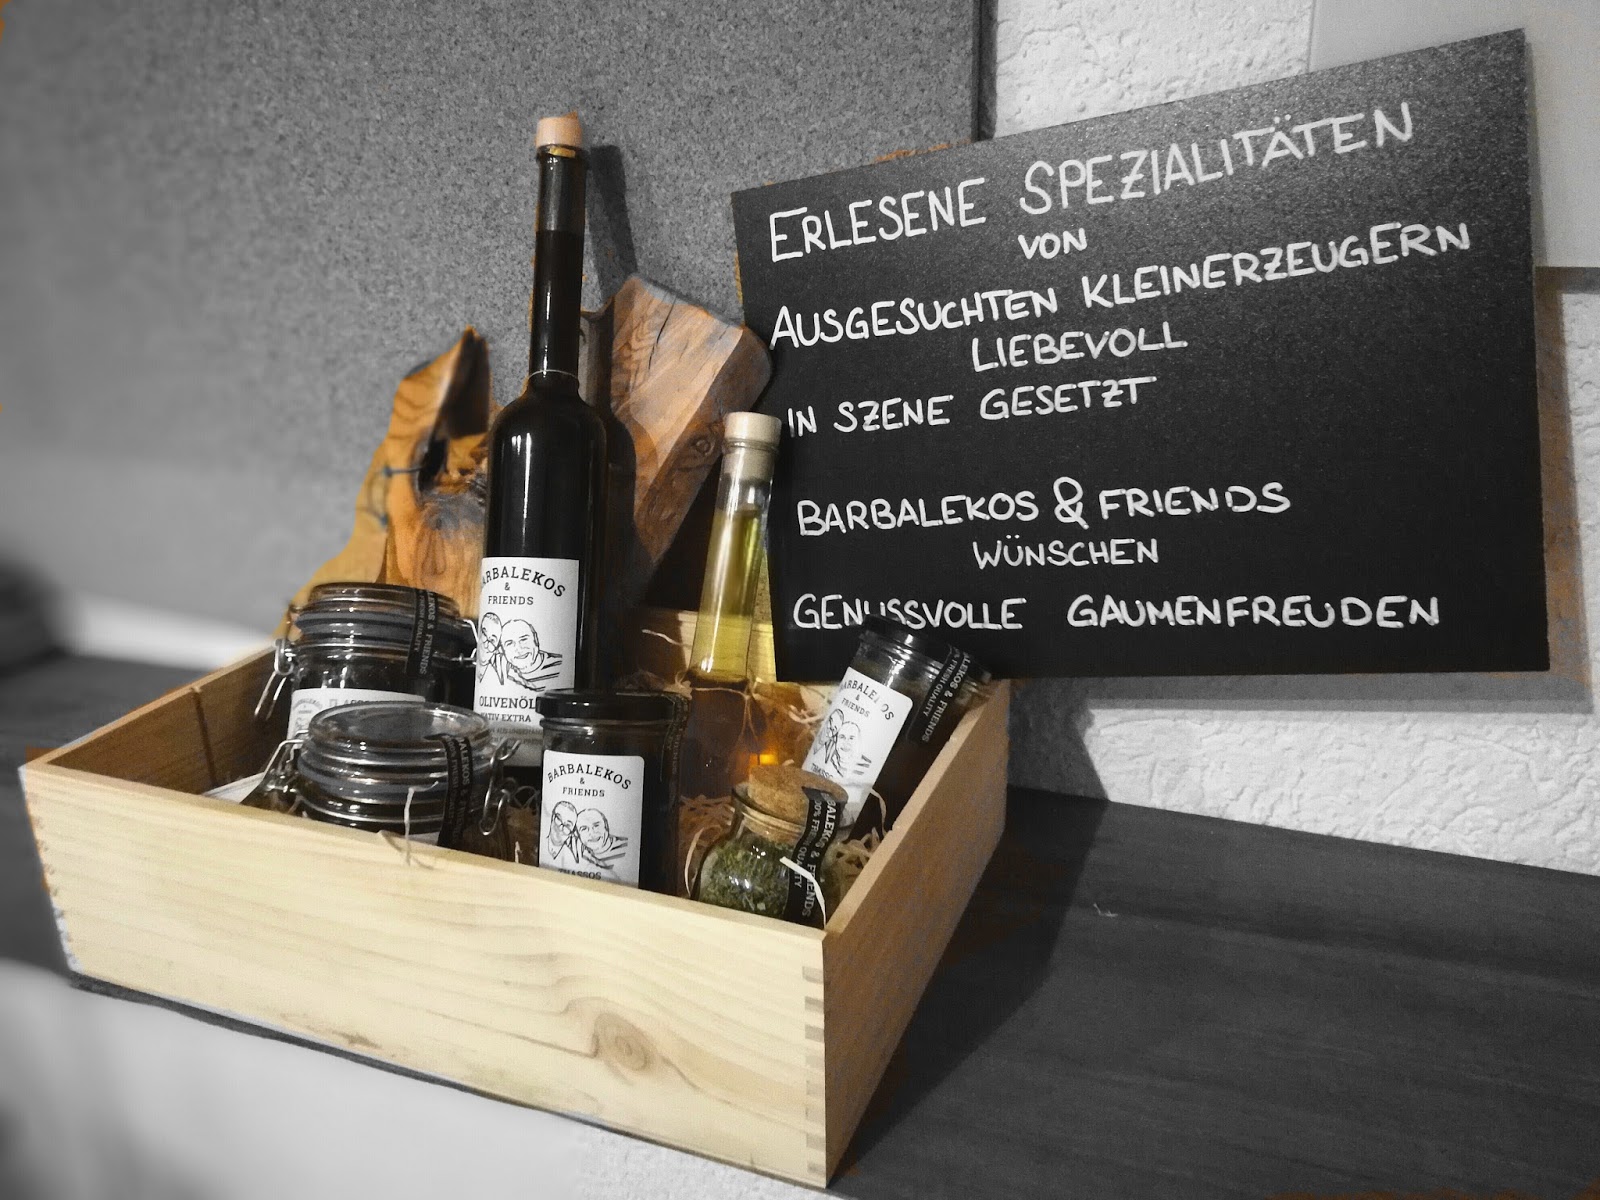 ERLESENE SPEZIALITÄTEN
VON
AUSGESUCHTEN KLEINERZEUGERN
LIEBEVOLL
IN SZENE GESETZT
BARBALEKOS & FRIENDS
WÜNSCHEN
GENUSSVOLLE GAUMENFREUDEN
BARBALEKOS
&
FRIENDS
OLIVENÖL
NATIV EXTRA
BARBALEKOS
&
FRIENDS
THASSOS
BARBALEKOS
&
FRIENDS
BALEKOS & FRIENDS
100% FRESH QUALITY
LEKOS & FRIENDS
FRESH QUALITY